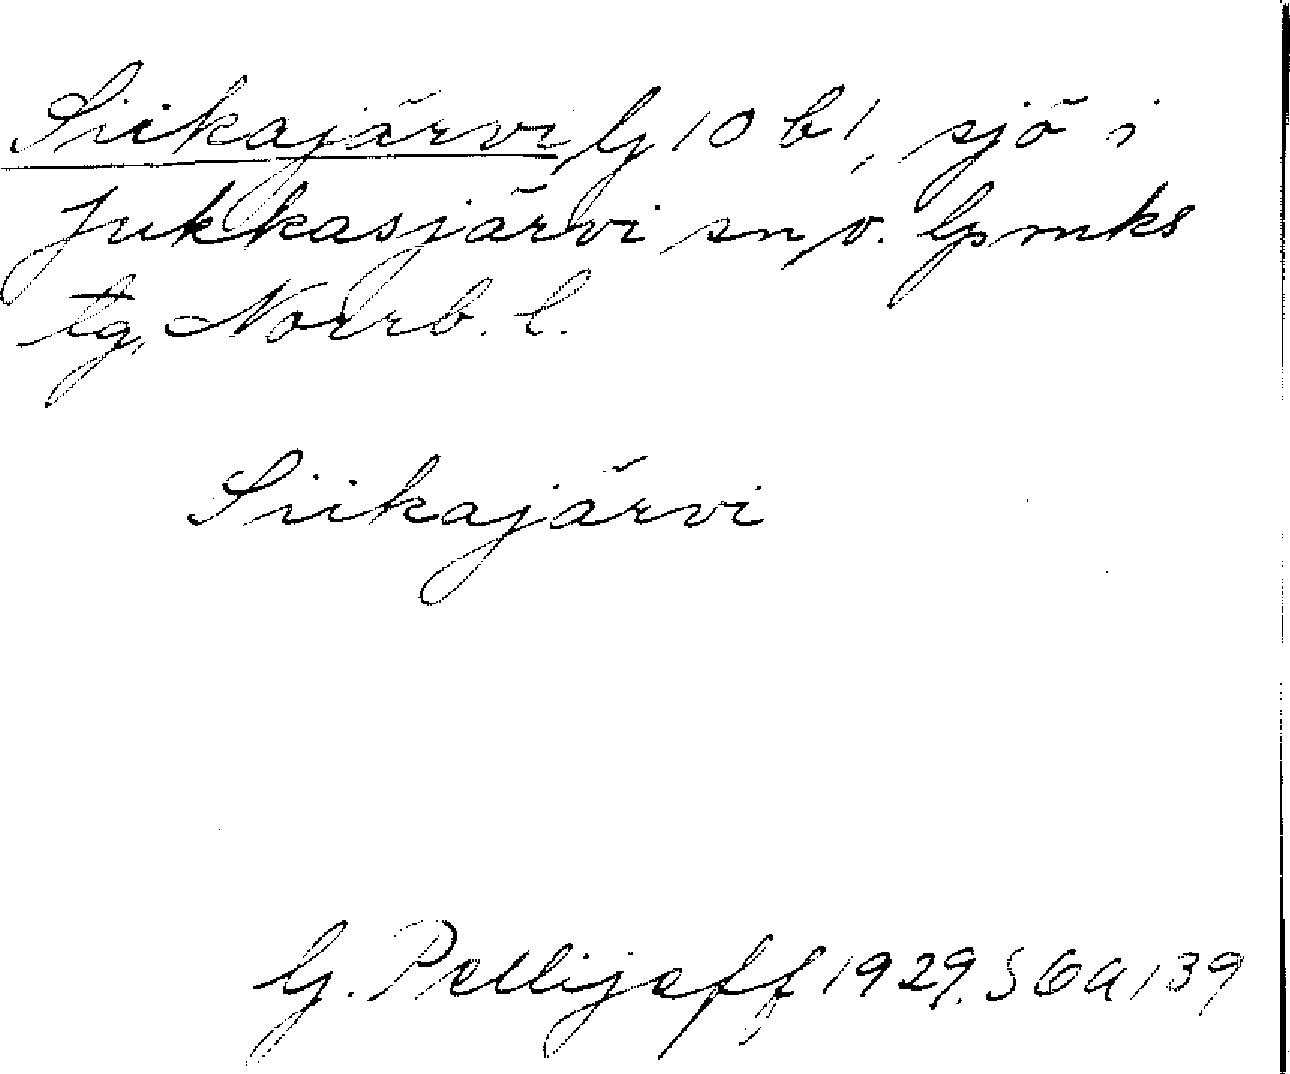 Siikajärvi, G 10 b 1, sjö i
Jukkasjärvi sn o. lpmks
tg, Norrb. l.
Siikajärvi
G. Pellijeff 1929. SGA 139